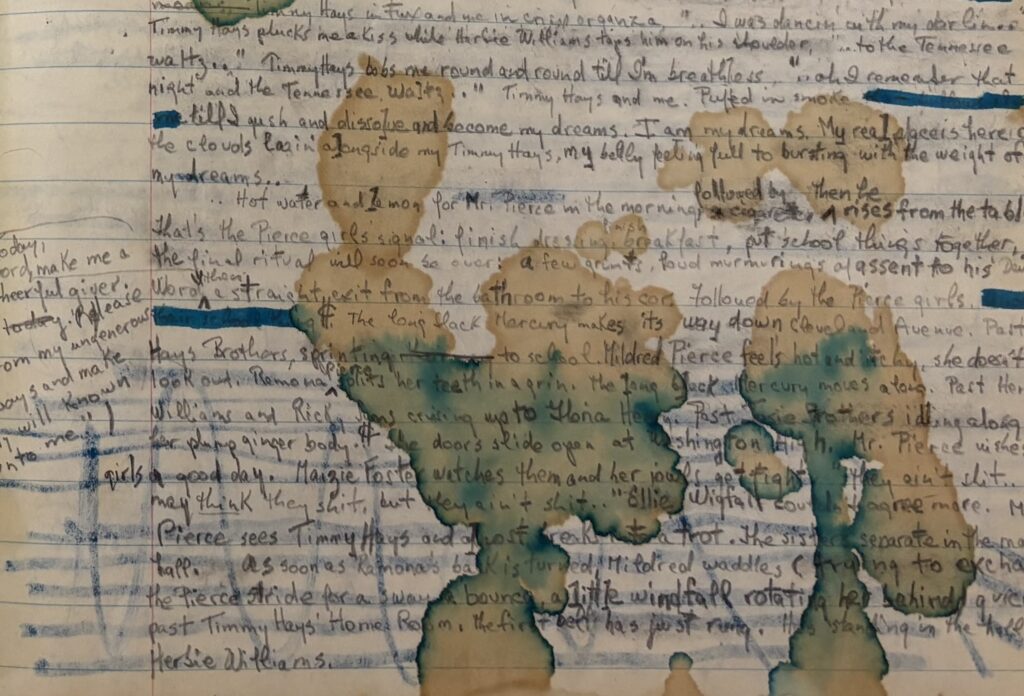 Timmy Hays in Tux and me in crisp organza, ".. I was dancin with my darlin..
Timmy Hays plucks me a kiss while Herbie Williams taps him on his shoulder, "...to the Tennessee
waltz..." Timmy Hays bobs me round and round till I'm breathless "..oh I remember that
night and the Tennessee Waltz." Timmy Hays and me. Puffed in smoke
till I gush and dissolve and become my dreams. I am my dreams. My real
the clouds lazin alongside my Timmy Hays, my belly feeling full to bursting with the weight of
my dreams..
.. Hot water and lemon for Mr. Pierce in the morning followed by a cigarette, then he rises from the tabl
That's the Pierce girls signal: finish dressing, finish breakfast, put school things together,
the final ritual will soon be over: a few grunts, loud murmurings of assent to his
Word, then a straight exit from the bathroom to his car followed by the Pierce girls.
¶. The long black Mercury makes its way down Cleveland Avenue. Past
Hays Brothers, sprinting to school. Mildred Pierce feels hot and itchy, she doesn't
look out. Ramona splits her teeth in a grin. The long black Mercury moves along. Past Her
Williams and Ricky cruising up to Past Brothers idling along
her plump ginger body. ¶ The doors slide open at Washington High. Mr. Pierce wishes
girls a good day. Maizie Foster watches them and her jowls get tight "They ain't shit..
may think they shit, but they ain't shit..." Ellie Wigfall couldn't agree more. M
Pierce sees Timmy Hays and almost breaks into a trot. The sisters separate in the ma
hall. As soon as Ramona's back is turned, Mildred waddles (trying to excha
the Pierce stride for a sway, a bounce, a little windfall rotating her behind) quic
past Timmy Hays' Home Room. The first bell has just rung. He's standing in the hall
Herbie Williams.
oday,
ord, make me a
heerful giver:
today. Please
rom my ungenerous
ways and make
will known
unto me.")